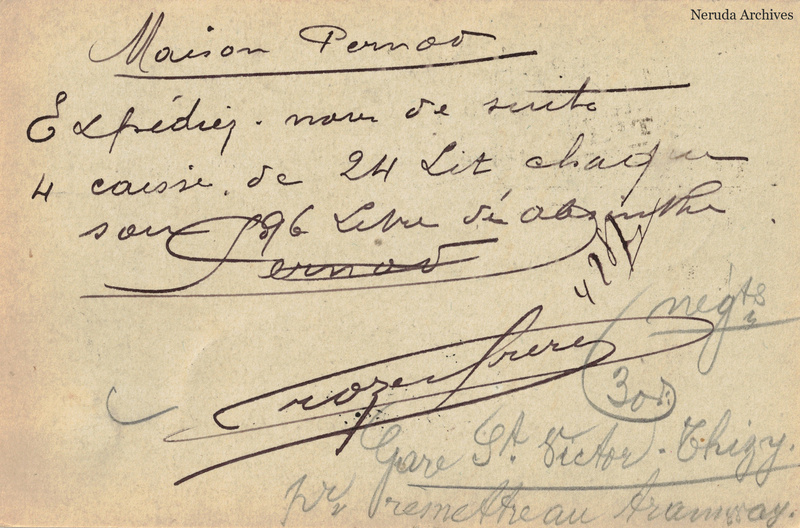 Neruda Archives
Maison Pernod
Expédiez-nous de suite
4 caisse de 24 Lit chaque
soit 96 Litre dé absinthe
Pernod
négts
Crozet frere
30
Gare St. Victor-Thizy.
pr remettre au tramway.